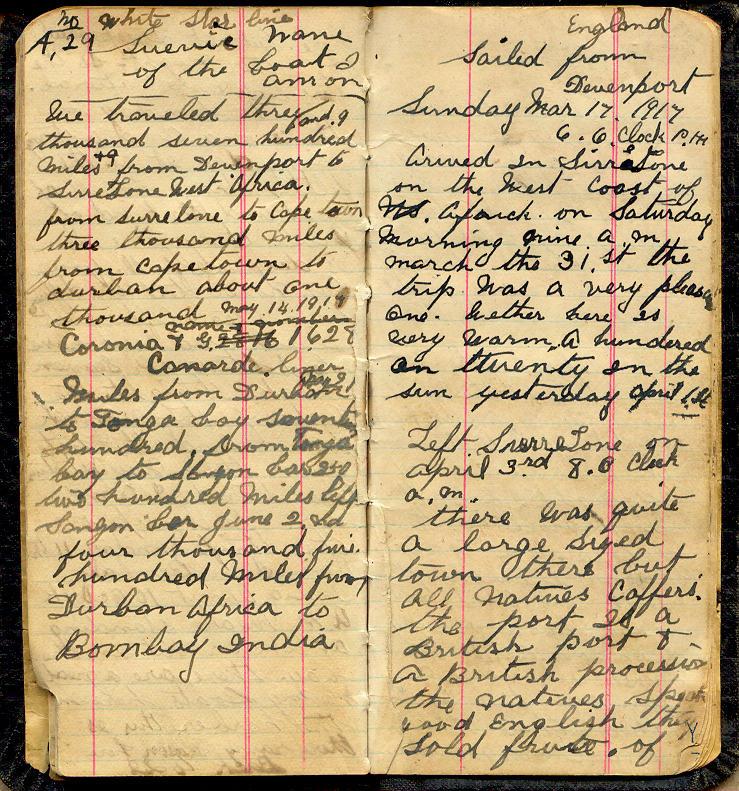 no white star line
A, 29 Suevic Name
of the boat I
am on
We traveled three
thousand seven hundred and 9
miles +9 from Devenport to
SirreLone West Africa.
from surrelone to Cape town
three thousand miles
from capetown to
durban about one
thousand May. 14. 1919
name & number
Coronia & G 1,627
Canarde. liner
Miles from Durban
to Tonga bay seventy
hundred. from Tonga
bay to Sangon bar 250
two hundred Miles left
Sangon bar June 2,nd
four thousand five.
hundred Miles from
Durban Africa to
Bombay India
England
Sailed from
Devenport
Sunday Mar 17. 1917
6. O. Clock P.M
Arived in SirreLone
on the West Coast of
Africk. on Saturday
Morning nine a, m
march the 31, st the
trip was a very pleasent
one. Wether here is
very warm, A hundred
an twenty in the
sun yesterday april 1.st
Left SierreLone on
april 3rd 8.O Clock
a, m.
there was quite
a large sized
town there but
all natives Caffers.
the port is a
British port &
a British procession
the natives speak
good English they
sold frute. of